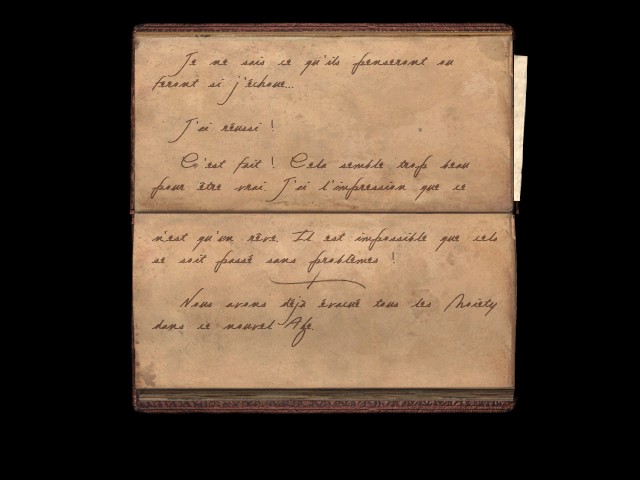 Je ne sais ce qu'ils penseront ou
feront si j'échoue...
J'ai réussi !
C'est fait ! Cela semble trop beau
pour être vrai. J'ai l'impression que ce
n'est qu'un rêve. Il est impossible que cela
se soit passé sans problèmes !
Nous avons déjà évacué tous les Moiety
dans ce nouvel Age.